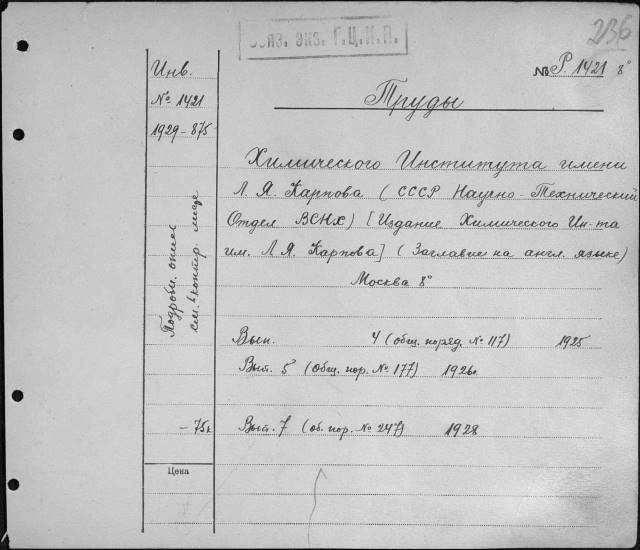 236
Обяз. экз. Г.Ц.К.П.
№ Р. 1421 8°
Инв.
№ 1421
1929-875
Труды
Химического Института имени
Л. Я. Карпова (СССР Научно-Технический
Отдел ВСНХ) [Издание Химического Ин-та
им. Л. Я. Карпова] (Заглавие на англ. языке)
Москва 8°
Подробн. опис.
см.
Вып. 4 (общ. поряд. № 117) 1925
Вып. 5 (Общ. пор. № 177) 1926
-75к Вып. 7 (об. пор. № 247) 1928
Цена